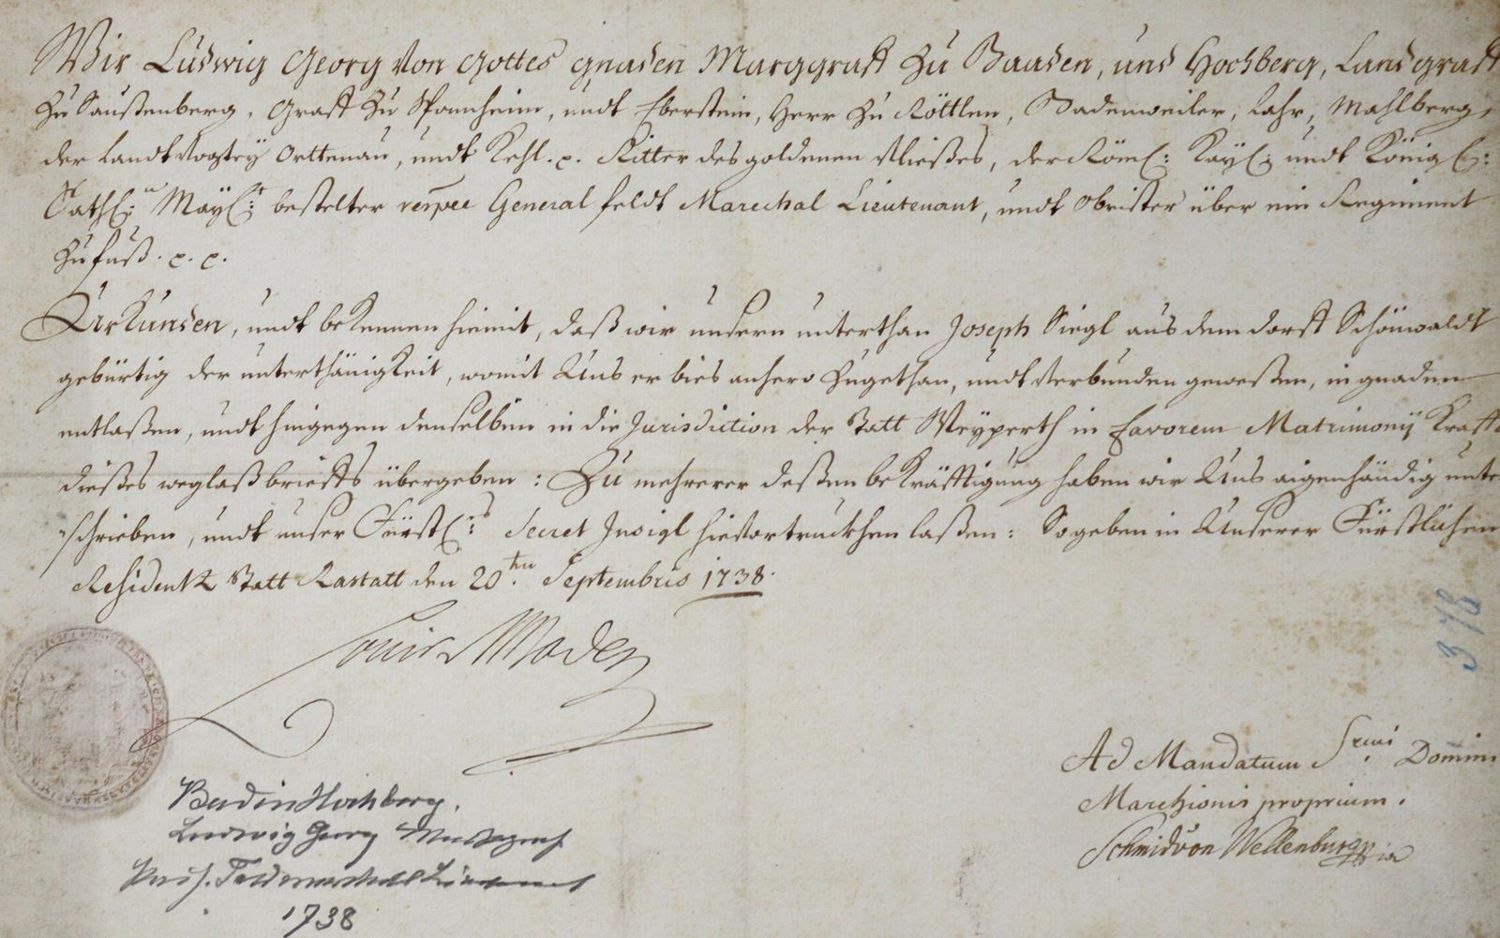 Wir Ludwig Georg von Gottes gnaden Marggraff zu Baaden, und Hochberg, Landgraff
zu Saußenberg, Graff zu Sponnheim, undt Eberstein, Herr zu Röttlen, Badenweiler, Lahr, Mahlberg,
der Landtvogtey Orttenau, undt Kehl. p. Ritter des goldenen Vließes, der Röm: Kay: undt König:
Cath: May: bestelter respec General feldt Marechal Lieutenant, undt Obrister über ein Regiment
zu fuß. p. p.
Urkunden, undt bekennen hiemit, daß wir unsern unterthan Joseph Siegl aus dem dorff Schönwaldt
gebürtig der unterthänigkeit, womit Uns er bies anhero zugethan, undt verbunden geweßen, in gnaden
entlaßen, undt hingegen denselben in die Jurisdiction der Statt Weyperth in favorem Matrimonij Krafft
dießes weglaßbrieffs übergeben: Zu mehrerer deßen bekräfftigung haben wir Uns aigenhändig unter
schrieben, undt unser Fürstl: Secret Insigl hievortruckhen laßen: So geben in Unserer Fürstlichen
Residentz Statt Rastatt den 20ten Septembris 1738.
378
Ad Mandatum Srmi Domini
Marchionis proprium.
Schmidt von Wellenburg
Baden Hochberg.
Ludwig Georg Markgraf
Feldmarschall Lieutenant
1738